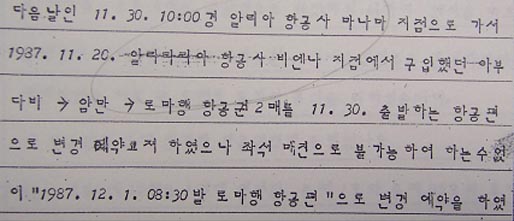 다음날인 11. 30. 10:00경 알리아 항공사 마나마 지점으로 가서
1987. 11. 20. 알리타리아 항공사 비엔나 지점에서 구입했던 아부
다비 → 암만 → 로마행 항공권 2매를 11. 30. 출발하는 항공편
으로 변경 예약코저 하였으나 좌석 매진으로 불가능하여 하는수없
이 "1987. 12. 1. 08:30발 로마행 항공편"으로 변경 예약을 하였